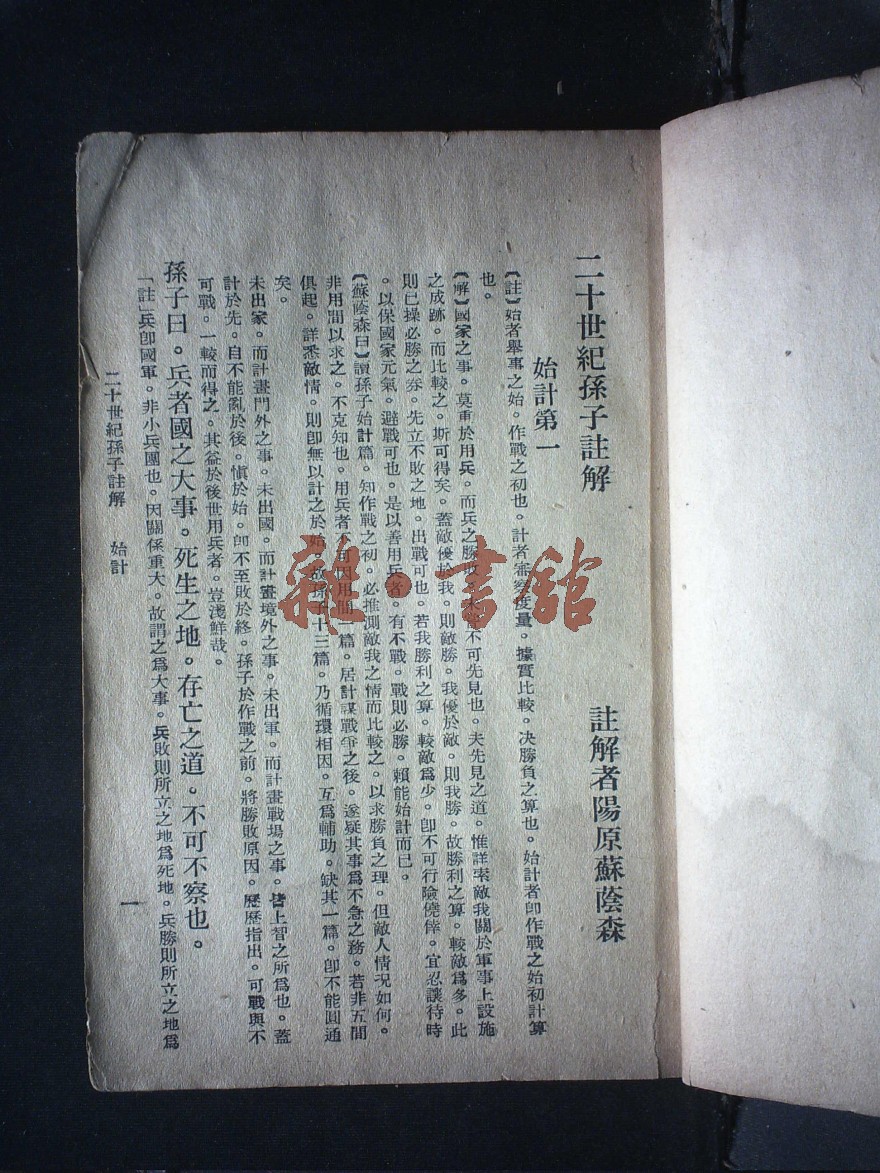 二十世紀孫子註解
註解者陽原蘇蔭森
始計第一
〔註〕始者舉事之始。作戰之初也。計者審察度量。據實比較。決勝負之算也。始計者卽作戰之始初計算
也。
〔解〕國家之事。莫重於用兵。而兵之勝敗。未不可先見也。夫先見之道。惟詳索敵我關於軍事上設施
之成跡。而比較之。斯可得矣。蓋敵優於我。則敵勝。我優於敵。則我勝。故勝利之算。較敵爲多。此
則已操必勝之券。先立不敗之地。出戰可也。若我勝利之算。較敵爲少。卽不可行險僥倖。宜忍讓待時
。以保國家元氣。避戰可也。是以善用兵者。有不戰。戰則必勝。賴能始計而已。
〔蘇蔭森曰〕讀孫子始計篇。知作戰之初。必推測敵我之情而比較之。以求勝負之理。但敵人情況如何。
非用間以求之。不克知也。用兵者不可因用間一篇。居計謀戰爭之後。遂疑其事爲不急之務。若非五間
俱起。詳悉敵情。則卽無以計之於始。故孫子十三篇。乃循環相因。互爲輔助。缺其一篇。卽不能圓通
矣。
未出家。而計畫門外之事。未出國。而計畫境外之事。未出軍。而計畫戰場之事。皆上智之所爲也。蓋
計於先。自不能亂於後。愼於始。卽不至敗於終。孫子於作戰之前。將勝敗原因。歷歷指出。可戰與不
可戰。一較而得之。其益於後世用兵者。豈淺鮮哉。
孫子曰。兵者國之大事。死生之地。存亡之道。不可不察也。
「註」兵卽國軍。非小兵團也。因關係重大。故謂之爲大事。兵敗則所立之地爲死地。兵勝則所立之地爲
二十世紀孫子註解　始計
一
雜·書館